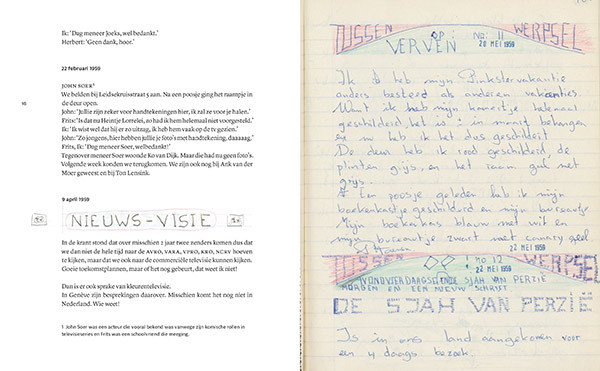 Ik: 'Dag meneer Joeks, wel bedankt.'
Herbert: 'Geen dank, hoor.'
22 februari 1959
JOHN SOER¹
We belden bij Leidsekruisstraat 5 aan. Na een poosje ging het raampje in
de deur open.
John: 'Jullie zijn zeker voor handtekeningen hier, ik zal ze voor je halen.'
Frits: 'Is dat nu Heintje Lemelei, zo had ik hem helemaal niet voorgesteld.'
Ik: 'Ik wist wel dat hij er zo uitzag, ik heb hem vaak op de tv gezien.'
John: 'Zo jongens, hier hebben jullie je foto's met handtekening, daaaaag.'
Frits, Ik: 'Dag meneer Soer, wel bedankt!'
Tegenover meneer Soer woonde Ko van Dijk. Maar die had nu geen foto's.
Volgende week konden we terugkomen. We zijn ook nog bij Ank van der
Moer geweest en bij Ton Lensink.
9 april 1959
NIEUWS-VISIE
In de krant stond dat over misschien 2 jaar twee zenders komen dus dat
we dan niet de hele tijd naar de AVRO, VARA, VPRO, KRO, NCRV hoeven
te kijken, maar dat we ook naar de commerciële televisie kunnen kijken.
Goeie toekomstplannen, maar of het nog gebeurt, dat weet ik niet!
Dan is er ook sprake van kleurentelevisie.
In Genève zijn besprekingen daarover. Misschien komt het nog niet in
Nederland. Wie weet!
1 John Soer was een acteur die vooral bekend was vanwege zijn komische rollen in
televisieseries en Frits was een schoolvriend die meeging.
TUSSEN OP: No: 11 WERPSEL
VERVEN 20 MEI 1959
Ik heb mijn Pinkstervakantie
anders besteed als anderen vakanties.
Want ik heb mijn kamertje helemaal
geschilderd, het is in mooi behangen
en nu heb ik het dus geschilderd
De deur heb ik rood geschilderd, de
plinten grijs, en het raam geel met
grijs.
Een poosje geleden heb ik mijn
boekenkastje geschilderd en mijn bureautje
Mijn boekenkas blauw met wit en
mijn bureautje zwart met canary geel
22 MEI 1959
TUSSEN No 12 WERPSEL
22 MEI 1959
MORGEN EEN NIEUW SCHRIFT
DE SJAH VAN PERZIË
Is in ons land aangekomen voor
een 4 daags bezoek.